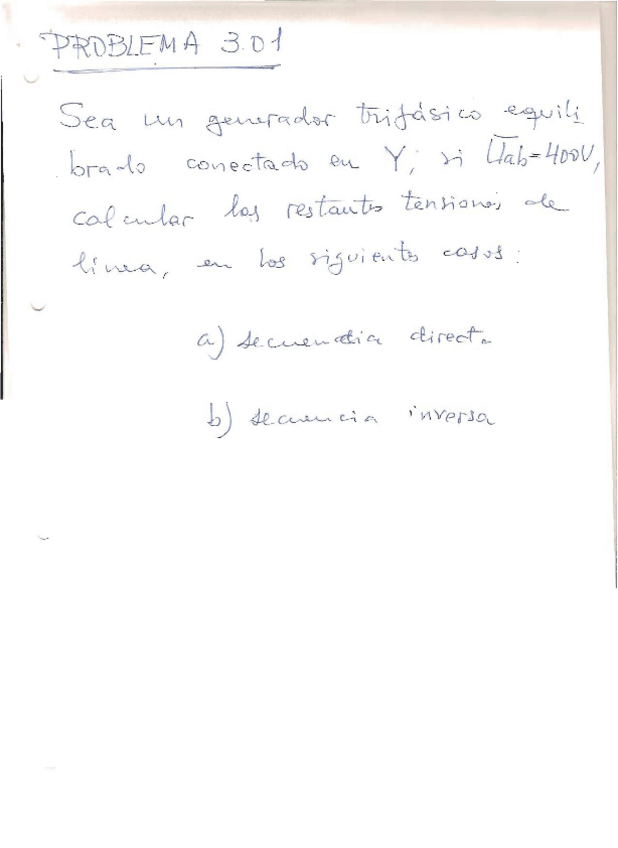 PROBLEMA 3.01
Sea un generador trifásico equili
brado conectado en Y, si Uab=400V,
calcular las restantes tensiones de
línea, en los siguientes casos:
a) secuencia directa
b) secuencia inversa